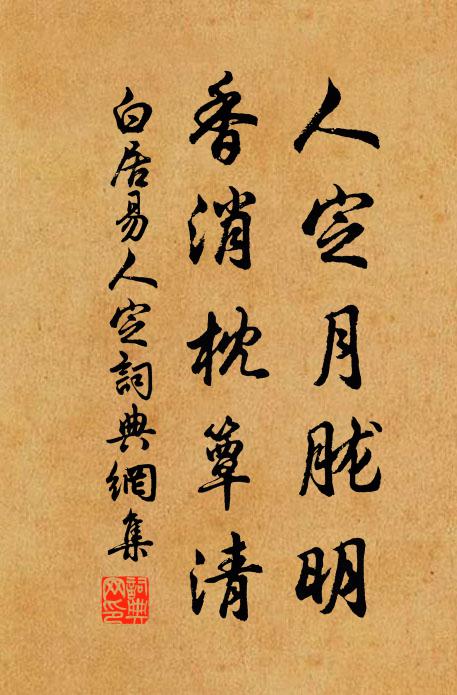 人定月胧明
香消枕簟清
白居易人定詞典網集
詞典网印